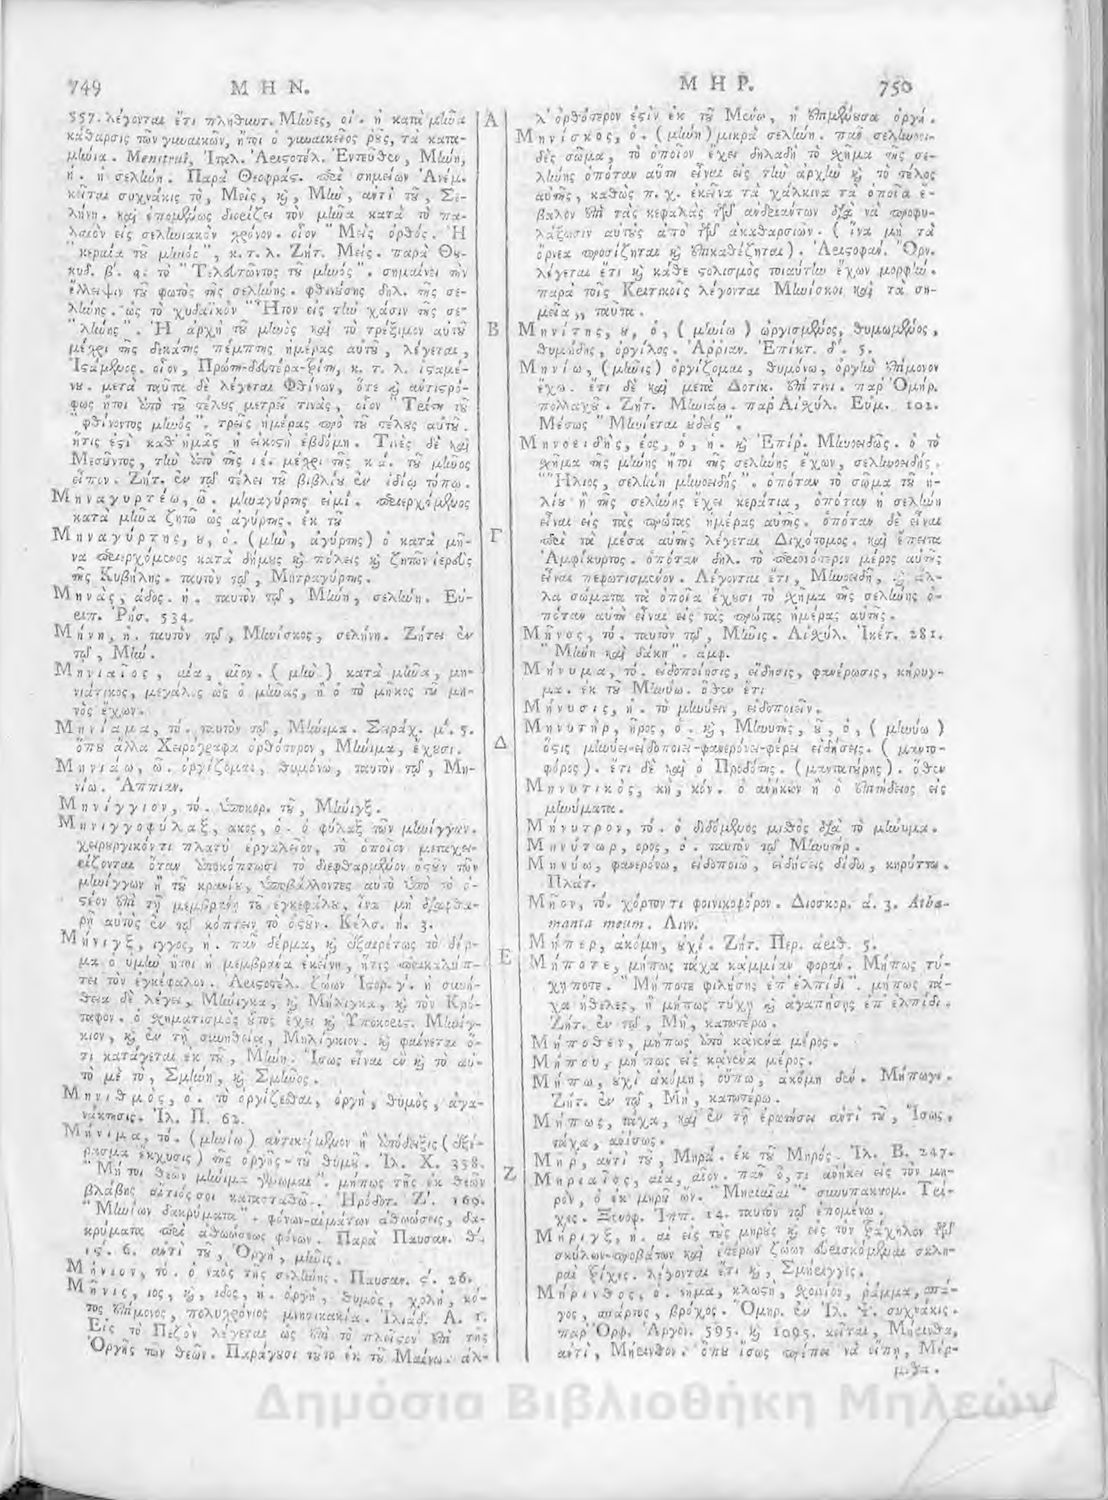 749 ΜΗΝ.
557. λέγονται ἔτι πληθυντ. Μῆνες, οἱ. ἡ κατὰ μῆνα
κάθαρσις τῶν γυναικῶν, ἤτοι ὁ γυναικεῖος ῥοῦς, τὰ κατα-
μήνια. Menstrui, Ἰταλ. Ἀριστοτέλ. Ἐντεῦθεν, Μήνη,
ἡ. ἡ σελήνη. Παρὰ Θεοφράς. περὶ σημείων Ἀνέμ.
κεῖται συχνάκις τὸ, Μεὶς, καὶ, Μὴν, ἀντὶ τοῦ, Σε-
λήνη. καὶ ἑπομένως διορίζει τὸν μῆνα κατὰ τὸ πα-
λαιὸν εἰς σεληνιακὸν χρόνον. οἷον "Μεὶς ὀρθός. Ἡ
"κεραία τοῦ μηνός", κ. τ. λ. Ζήτ. Μείς. παρὰ Θου-
κυδ. β'. 4. τὸ "Τελευτῶντος τοῦ μηνός". σημαίνει τὴν
ἔλλειψιν τοῦ φωτὸς τῆς σελήνης. φθινούσης δηλ. τῆς σε-
λήνης. ὡς τὸ χυδαϊκὸν "Ἦτον εἰς τὴν χάσιν τῆς σε-
"λήνης". Ἡ ἀρχὴ τοῦ μηνὸς καὶ τὸ τρέξιμον αὐτοῦ
μέχρι τῆς δεκάτης πέμπτης ἡμέρας αὐτοῦ, λέγεται,
Ἱστάμενος. οἷον, Πρώτη-δευτέρα-τρίτη, κ. τ. λ. ἱσταμέ-
νου. μετὰ ταῦτα δὲ λέγεται Φθίνων, ὅτε καὶ ἀντιστρό-
φως ἤτοι ἀπὸ τοῦ τέλους μετροῦν τινὰς, οἷον "Τρίτη τοῦ
"φθίνοντος μηνός". τρεῖς ἡμέρας πρὸ τοῦ τέλους αὐτοῦ.
ἥτις ἐστὶ καθ' ἡμᾶς ἡ εἰκοστὴ ἑβδόμη. Τινὲς δὲ καὶ
Μεσοῦντος, τὴν ἀπὸ τῆς ιέ. μέχρι τῆς κ ά. τοῦ μηνὸς
εἶπον. Ζήτ. ἐν τῷ τέλει τοῦ βιβλίου ἐν ἰδίῳ τόπῳ.
Μηναγυρτέω, ῶ. μηναγύρτης εἰμί. περιερχόμενος
κατὰ μῆνα ζητῶ ὡς ἀγύρτης. ἐκ τοῦ
Μηναγύρτης, ου, ὁ. (μὴν, ἀγύρτης) ὁ κατὰ μῆ-
να περιερχόμενος κατὰ δήμους καὶ πόλεις καὶ ζητῶν ἱερεὺς
τῆς Κυβήλης. ταυτὸν τῷ, Μητραγύρτης.
Μηνὰς, άδος. ἡ. ταυτὸν τῷ, Μήνη, σελήνη. Εὐ-
ριπ. Ῥήσ. 534.
Μήνη, ἡ. ταυτὸν τῷ, Μηνίσκος, σελήνη. Ζήτει ἐν
τῷ, Μήν.
Μηνιαῖος, αία, αῖον. (μὴν) κατὰ μῆνα, μη-
νιάτικος, μεγάλος ὡς ὁ μῆνας, ἢ ὁ τὸ μῆκος τοῦ μη-
νὸς ἔχων.
Μηνίαμα, τό. ταυτὸν τῷ, Μήνιμα. Σειράχ. μ'. 5.
ὅπου ἄλλα Χειρόγραφα ὀρθότερον, Μήνιμα, ἔχουσι.
Μηνιάω, ῶ. ὀργίζομαι, θυμόνω, ταυτὸν τῷ, Μη-
νίω. Ἀππιαν.
Μηνίγγιον, τό. ὑποκορ. τοῦ, Μῆνιγξ.
Μηνιγγοφύλαξ, ακος, ὁ. ὁ φύλαξ τῶν μηνίγγων.
χειρουργικόν τι πλατὺ ἐργαλεῖον, τὸ ὁποῖον μεταχει-
ρίζονται ὅταν ἀποκόπτωσι τὸ διεφθαρμένον ὀστοῦν τῶν
μηνίγγων ἢ τοῦ κρανίου, ὑποβάλλοντες αὐτὸ ὑπὸ τὸ ὀ-
στέον ἐπὶ τῇ μεμβράνῃ τοῦ ἐγκεφάλου, ἵνα μὴ διαφθα-
ρῇ αὐτὸς ἐν τῷ κόπτειν τὸ ὀστοῦν. Κέλσ. ή. 3.
Μῆνιγξ, ιγγος, ἡ. πᾶν δέρμα, καὶ ἐξαιρέτως τὸ δέρ-
μα ὁ ὑμὴν ἤτοι ἡ μεμβράνα ἐκείνη, ἥτις περικαλύπ-
τει τὸν ἐγκέφαλον. Ἀριστοτέλ. ζώων Ἱστορ. γ'. ἡ συνή-
θεια δὲ λέγει, Μήνιγκα, καὶ Μήλιγκα, καὶ τὸν Κρό-
ταφον. ὁ σχηματισμὸς οὗτος ἔχει καὶ Ὑποκορις. Μηνίγ-
κιον, καὶ ἐν τῇ συνηθείᾳ, Μηλίγκιον. καὶ φαίνεται ὅ-
τι κατάγεται ἐκ τοῦ, Μήνη. Ἴσως εἶναι ἓν καὶ τὸ αὐ-
τὸ μὲ τὸ, Σμήνη, καὶ Σμῆνος.
Μηνιθμὸς, ὁ. τὸ ὀργίζεσθαι, ὀργὴ, θυμὸς, ἀγα-
νάκτησις. Ἰλ. Π. 62.
Μήνιμα, τό. (μηνίω) ἀντικείμενον ἢ ἀπόδειξις (ἐξέ-
ρασμα ἔκχυσις) τῆς ὀργῆς-τοῦ θυμοῦ. Ἰλ. Χ. 358.
"Μή τοι θεῶν μήνιμα γένωμαι". μήπως τῆς ἐκ θεῶν
βλάβης αἴτιός σοι κατασταθῶ. Ἡρόδοτ. Ζ'. 169.
"Μηνίων δακρύματα". φόνων-αἱμάτων ἀθωώσεις, δα-
κρύματα περὶ ἀθωώσεως φόνων. Παρὰ Παυσαν. θ'.
ις'. 6. ἀντὶ τοῦ, Ὀργὴ, μῆνις.
Μήνιον, τό. ὁ ναὸς τῆς σελήνης. Παυσαν. ς'. 26.
Μῆνις, ιος, καὶ, ιδος, ἡ. ὀργὴ, θυμὸς, χολὴ, κό-
τος ἐπίμονος, πολυχρόνιος μνησικακία. Ἰλιάδ. Α. 1.
Εἰς τὸ Πεζὸν λέγεται ὡς ἐπὶ τὸ πλεῖστον ἐπὶ τῆς
Ὀργῆς τῶν θεῶν. Παράγουσι τοῦτο ἐκ τοῦ Μαίνω. ἀλ-
Α
Β
Γ
Δ
Ε
Ζ
ΜΗΡ. 750
λ' ὀρθότερον ἐστὶν ἐκ τοῦ Μένω, ἡ ἐπιμένουσα ὀργή.
Μηνίσκος, ὁ. (μήνη) μικρὰ σελήνη. πᾶν σεληνοει-
δὲς σῶμα, τὸ ὁποῖον ἔχει δηλαδὴ τὸ σχῆμα τῆς σε-
λήνης ὁπόταν αὕτη εἶναι εἰς τὴν ἀρχὴν καὶ τὸ τέλος
αὐτῆς, καθὼς π. χ. ἐκεῖνα τὰ χάλκινα τὰ ὁποῖα ἔ-
βαλον ἐπὶ τὰς κεφαλὰς τῶν ἀνδριάντων διὰ νὰ προφυ-
λάξωσιν αὐτοὺς ἀπὸ τῶν ἀκαθαρσιῶν. (ἵνα μὴ τὰ
ὄρνεα προσίζηται καὶ ἐπικαθέζηται). Ἀριστοφαν. Ὄρν.
λέγεται ἔτι καὶ κάθε στολισμὸς τοιαύτην ἔχων μορφήν.
παρὰ τοῖς Κριτικοῖς λέγονται Μηνίσκοι καὶ τὰ ση-
μεῖα ,, ταῦτα.
Μηνίτης, ου, ὁ, (μηνίω) ὠργισμένος, θυμωμένος,
θυμώδης, ὀργίλος. Ἀρριαν. Ἐπίκτ. δ'. 5.
Μηνίω, (μῆνις) ὀργίζομαι, θυμόνω, ὀργὴν ἐπίμονον
ἔχω. ἔτι δὲ καὶ μετὰ Δοτικ. ἐπί τινι. παρ' Ὁμήρ.
πολλαχοῦ. Ζήτ. Μηνιάω. παρ' Αἰσχύλ. Εὐμ. 101.
Μέσως "Μηνίεται οὐδείς".
Μηνοειδὴς, έος, ὁ, ἡ. καὶ Ἐπίρ. Μηνοειδῶς. ὁ τὸ
σχῆμα τῆς μήνης ἤτοι τῆς σελήνης ἔχων, σεληνοειδής.
"Ἥλιος, σελήνη μηνοειδής". ὁπόταν τὸ σῶμα τοῦ ἡ-
λίου ἢ τῆς σελήνης ἔχει κεράτια, ὁπόταν ἡ σελήνη
εἶναι εἰς τὰς πρώτας ἡμέρας αὐτῆς. ὁπόταν δὲ εἶναι
περὶ τὰ μέσα αὐτῆς λέγεται Διχότομος. καὶ ἔπειτα
Ἀμφίκυρτος. ὁπόταν δηλ. τὸ περισσότερον μέρος αὐτῆς
εἶναι πεφωτισμένον. Λέγονται ἔτι, Μηνοειδῆ, καὶ ἄλ-
λα σώματα τὰ ὁποῖα ἔχουσι τὸ σχῆμα τῆς σελήνης ὁ-
πόταν αὕτη εἶναι εἰς τὰς πρώτας ἡμέρας αὐτῆς.
Μῆνος, τό. ταυτὸν τῷ, Μῆνις. Αἰσχύλ. Ἱκέτ. 281.
"Μήνη καὶ δάκη". ἀμφ.
Μήνυμα, τό. εἰδοποίησις, εἴδησις, φανέρωσις, κήρυγ-
μα. ἐκ τοῦ Μηνύω. ὅθεν ἔτι
Μήνυσις, ἡ. τὸ μηνύειν, εἰδοποιεῖν.
Μηνυτὴρ, ῆρος, ὁ. καὶ, Μηνυτὴς, οῦ, ὁ, (μηνύω)
ὅστις μηνύει-εἰδοποιεῖ-φανερόνει-φέρει εἰδήσεις. (μαντο-
φόρος). ἔτι δὲ καὶ ὁ Προδότης. (μαντατούρης). ὅθεν
Μηνυτικὸς, κὴ, κόν. ὁ ἀνήκων ἢ ὁ ἐπιτήδειος εἰς
μηνύματα.
Μήνυτρον, τό. ὁ διδόμενος μισθὸς διὰ τὸ μήνυμα.
Μηνύτωρ, ορος, ὁ. ταυτὸν τῷ Μηνυτήρ.
Μηνύω, φανερόνω, εἰδοποιῶ, εἰδήσεις δίδω, κηρύττω.
Πλάτ.
Μῆον, τό. χόρτον τι φοινικοφόρον. Διοσκορ. ά. 3. Athamanta meum. Λινν.
Μήπερ, ἀκόμη, οὐχί. Ζήτ. Περ. ἀριθ. 5.
Μήποτε, μήπως τάχα καμμίαν φοράν. Μήπως τύ-
χῃ ποτε. "Μήποτε φιλήσῃς ἐπ' ἐλπίδι". μήπως τά-
χα ἤθελες, ἢ μήπως τύχῃ καὶ ἀγαπήσῃς ἐπ' ἐλπίδι.
Ζήτ. ἐν τῷ, Μὴ, κατωτέρω.
Μήποθεν, μήπως ἀπὸ κανένα μέρος.
Μήπου, μήπως εἰς κανένα μέρος.
Μήπω, οὐχὶ ἀκόμη, οὔπω, ἀκόμη δέν. Μήπωγε.
Ζήτ. ἐν τῷ, Μὴ, κατωτέρω.
Μήπως, τάχα, καὶ ἐν τῇ ἐρωτήσει ἀντὶ τοῦ, Ἴσως.
τάχα, ἀνίσως.
Μὴρ, ἀντὶ τοῦ, Μηρά. ἐκ τοῦ Μηρός. Ἰλ. Β. 247.
Μηριαῖος, αία, αῖον. πᾶν ὅ,τι ἀνήκει εἰς τὸν μη-
ρὸν, ὁ ἐκ μηροῦ ὤν. "Μηριαῖαι" συνυπακουομ. Τρί-
χες. Ξενοφ. Ἱππ. 14. ταυτὸν τῷ ἑπομένῳ.
Μήριγξ, ἡ. αἱ εἰς τοὺς μηροὺς καὶ εἰς τὸν τράχηλον τῶν
σκύλων-προβάτων καὶ ἑτέρων ζώων εὑρισκόμεναι σκλη-
ραὶ τρίχες. λέγονται ἔτι καὶ, Σμήριγγες.
Μήρινθος, ὁ. νῆμα, κλωστὴ, σχοινίον, ῥάμμα, σπά-
γος, σπάρτος, βρόχος. Ὁμηρ. ἐν Ἰλ. Ψ. συχνάκις.
παρ' Ὀρφ. Ἀργον. 595. καὶ 1095. κεῖται, Μήρινθα,
ἀντὶ, Μήρινθον. ὅπου ἴσως πρέπει νὰ εἴπῃ, Μέρ-
μιθα.
Δημόσια Βιβλιοθήκη Μηλεών